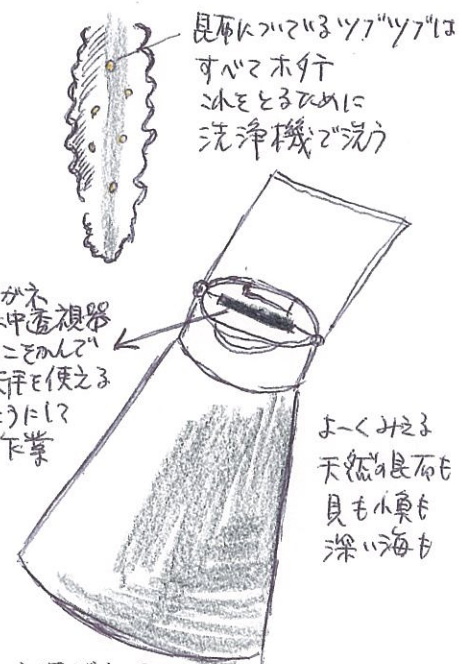 昆布についているツブツブは
すべてホタテ
これをとるために
洗浄機で洗う
がネ
中透視器
こをかんで
を使える
うにして
作業
よーくみえる
天然の昆布も
貝も小魚も
深い海も